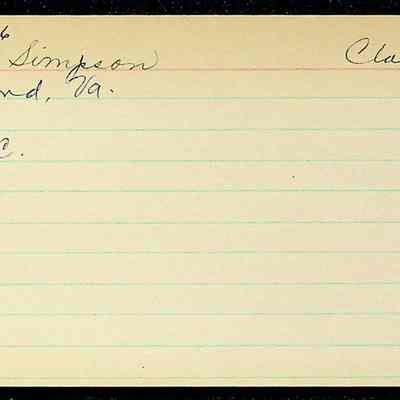 6
Simpson Cla
nd, Va.
C.